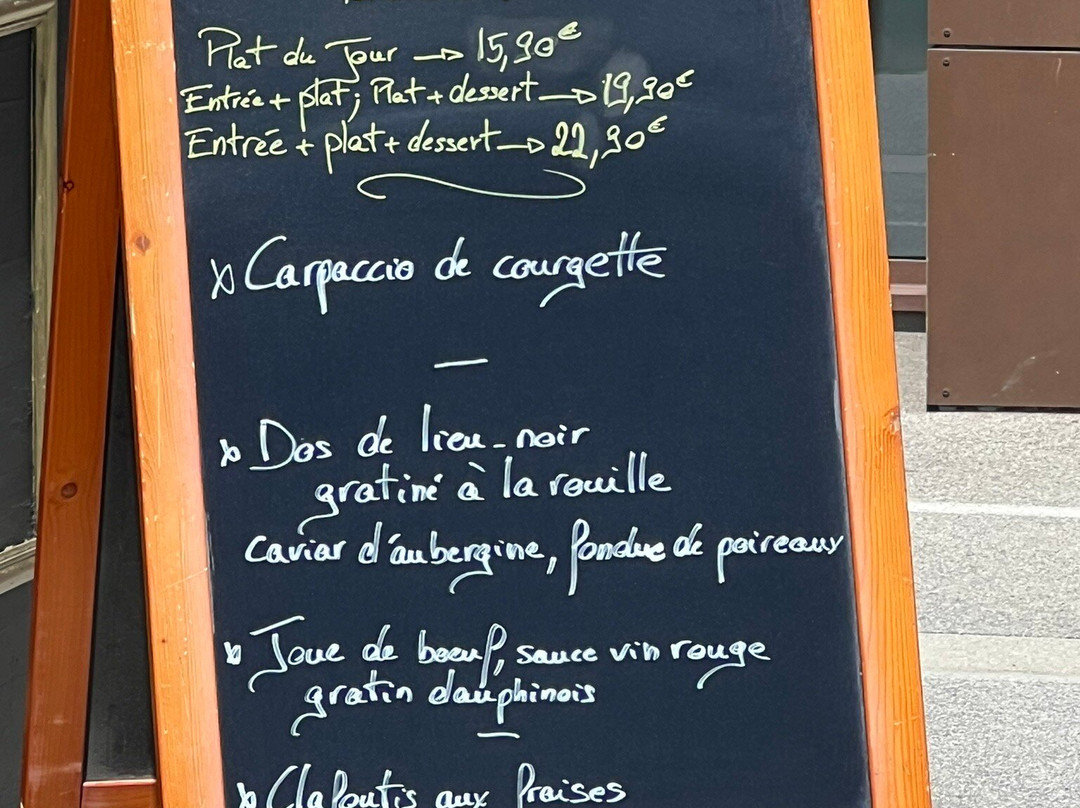 Plat du Jour → 15,90€
Entrée + plat ; Plat + dessert → 19,90€
Entrée + plat + dessert → 22,90€
Carpaccio de courgette
—
Dos de lieu-noir
gratiné à la rouille
caviar d'aubergine, fondue de poireaux
Joue de boeuf, sauce vin rouge
gratin dauphinois
—
Clafoutis aux fraises